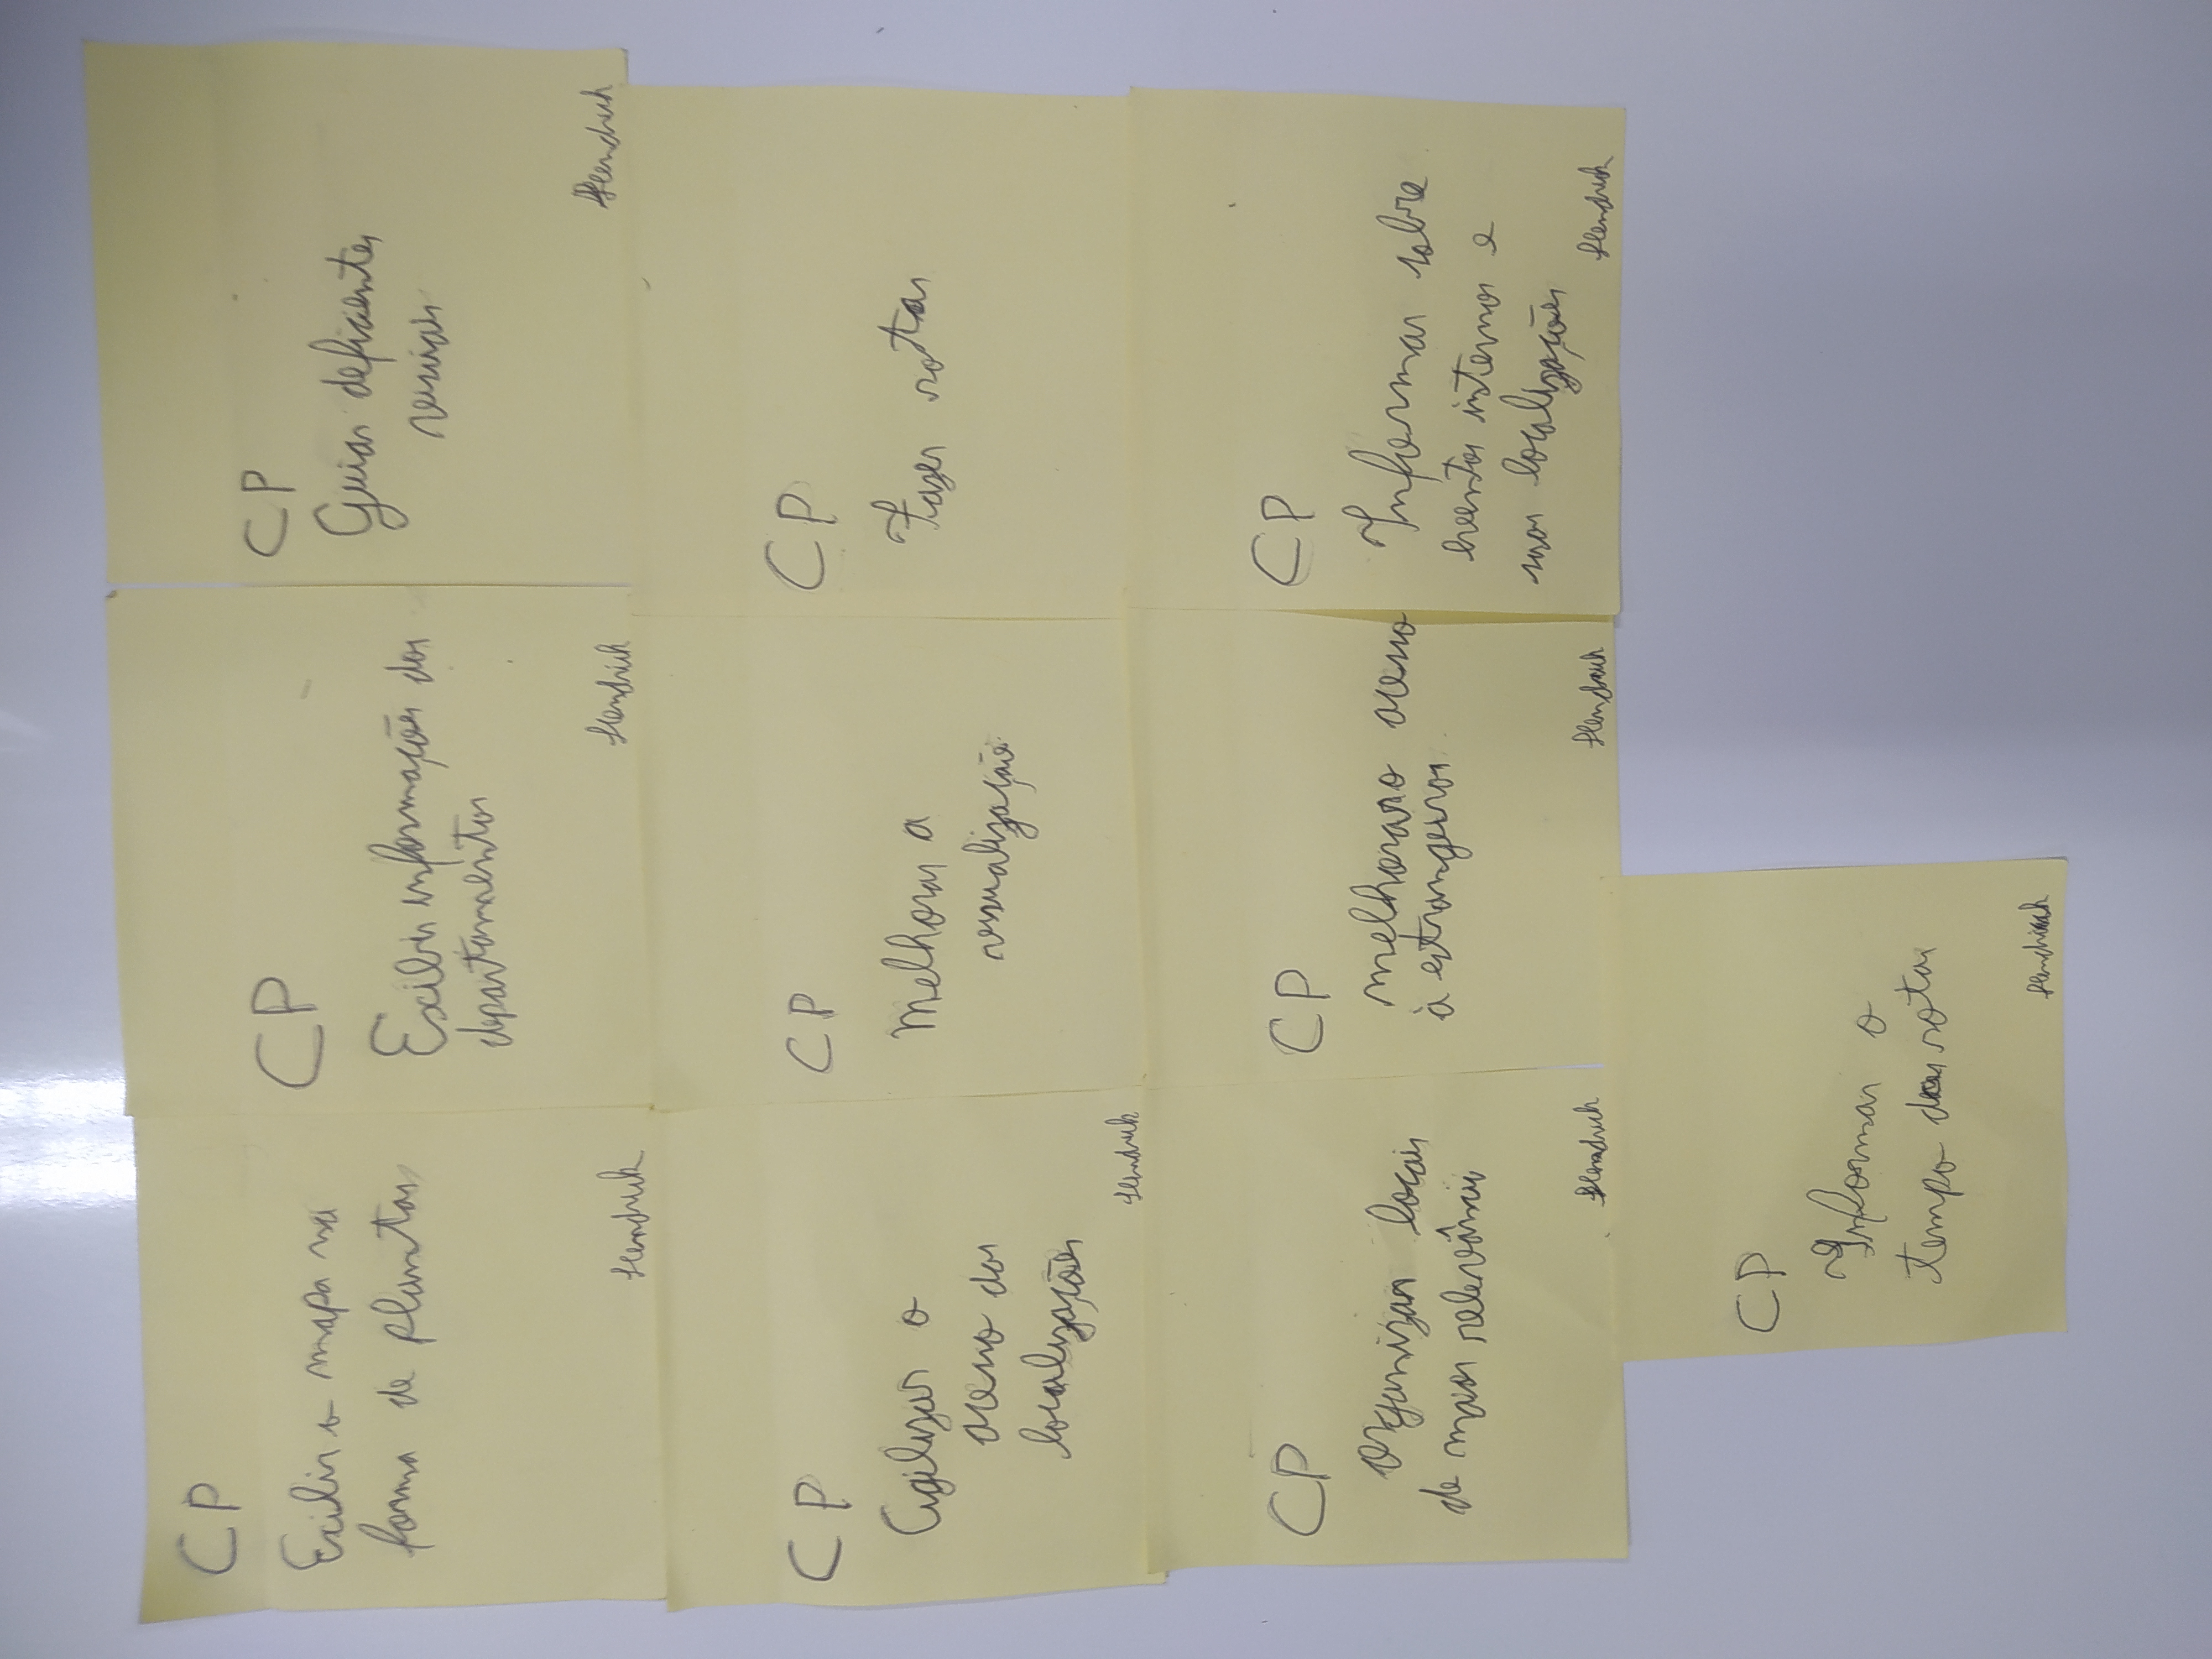 CP
Exibir o mapa na
forma de plantas
Hendrick
CP
Exibir informações dos
departamentos
Hendrick
CP
Guiar deficientes
visuais
Hendrick
CP
Agilizar o
acesso das
localizações
Hendrick
CP
Melhorar a
visualização
CP
Fazer rotas
CP
Organizar locais
de maior relevância
Hendrick
CP
melhorar o acesso
à estrangeiros
Hendrick
CP
Informar sobre
eventos internos e
suas localizações
Hendrick
CP
Informar o
tempo das rotas
Hendrick